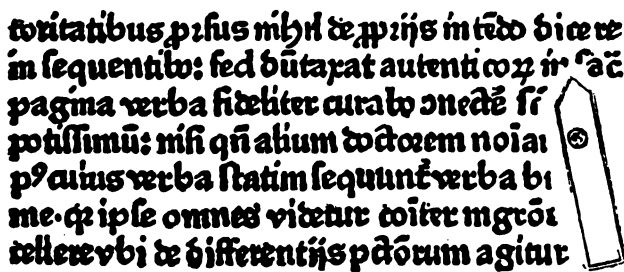 toritatibus ꝓrsus nihil de ꝓprijs intēdo dicere
in sequentibꝰ: sed dūtaxat autenticoꝝ in sac̄
pagina verba fideliter curabo ↄnectē
potissimū: nisi qn̄ alium doctorem
pꝰ cuius verba statim sequunt᷑ verba
me. qꝛ ipse omnes videtur coīter
cellere vbi de differentijs pctōrum agitur